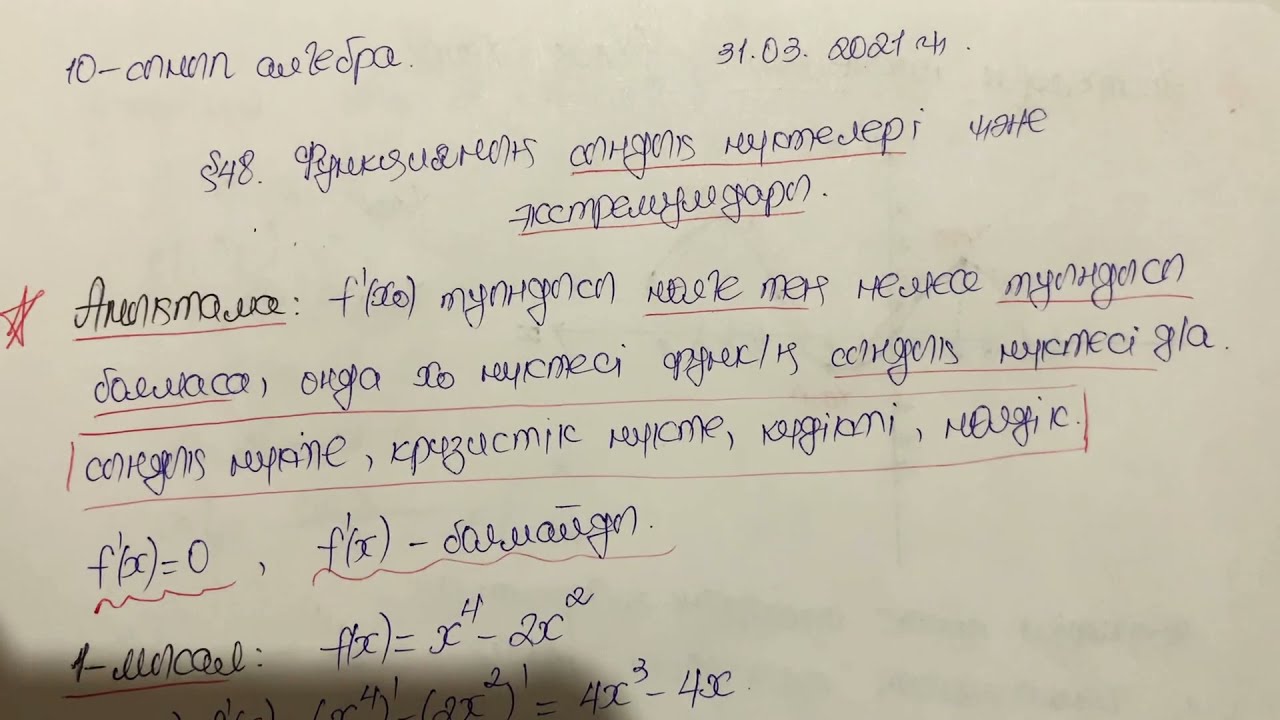 10-сынып алгебра. 31.03.2021 ж.
§48. Функцияның сындық нүктелері және
экстремумдары.
Анықтама: f'(x₀) туындысы нөлге тең немесе туындысы
болмаса, онда x₀ нүктесі функ/ң сындық нүктесі д/а.
сындық нүкте, кризистік нүкте, күдікті, нөлдік.
f'(x)=0 , f'(x) – болмайды.
1-мысал: f(x) = x⁴ – 2x²
(x⁴)' – (2x²)' = 4x³ – 4x.